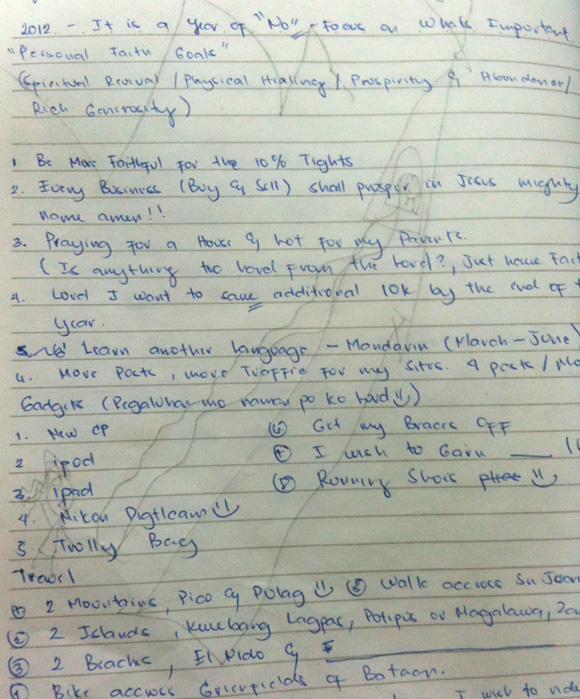 2012 - It is a year of "No" - Focus on Whats Important
"Personal Faith Goals"
(Spiritual Revival / Physical Healing / Prosperity & Abundance /
Rich Generosity)
1 Be More Faithful for the 10% Tights
2. Every Business (Buy & Sell) shall prosper in Jesus mighty
name amen!!
3. Praying for a House & lot for my Parents.
(Is anything too hard from the Lord?, Just have
4. Lord I want to save additional 10k by the end of
year.
Learn another language - Mandarin (March - June)
4. More Posts, more Traffic for my sites. 4 posts /
Gadgets (Regaluhan mo naman po ko Lord)
1. New CP (6) Get my Braces OFF
2 ipod (7) I wish to Gain ___
3. ipad (8) Running Shoes
4. Nikon Digitcam
5 Trolly Bag
Travel
(1) 2 Mountains, Pico & Pulag (5) Walk accross
(2) 2 Islands,
(3) 2 Beaches, El Nido &
(4) Bike accross of Bataan.
I wish to